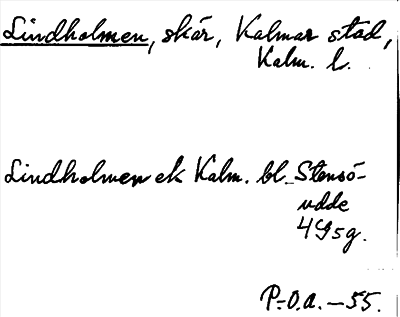 Lindholmen, skär, Kalmar stad,
Kalm. l.
Lindholmen ek Kalm. bl. Stensö-
udde
4G5g.
P.-O.A.-55.